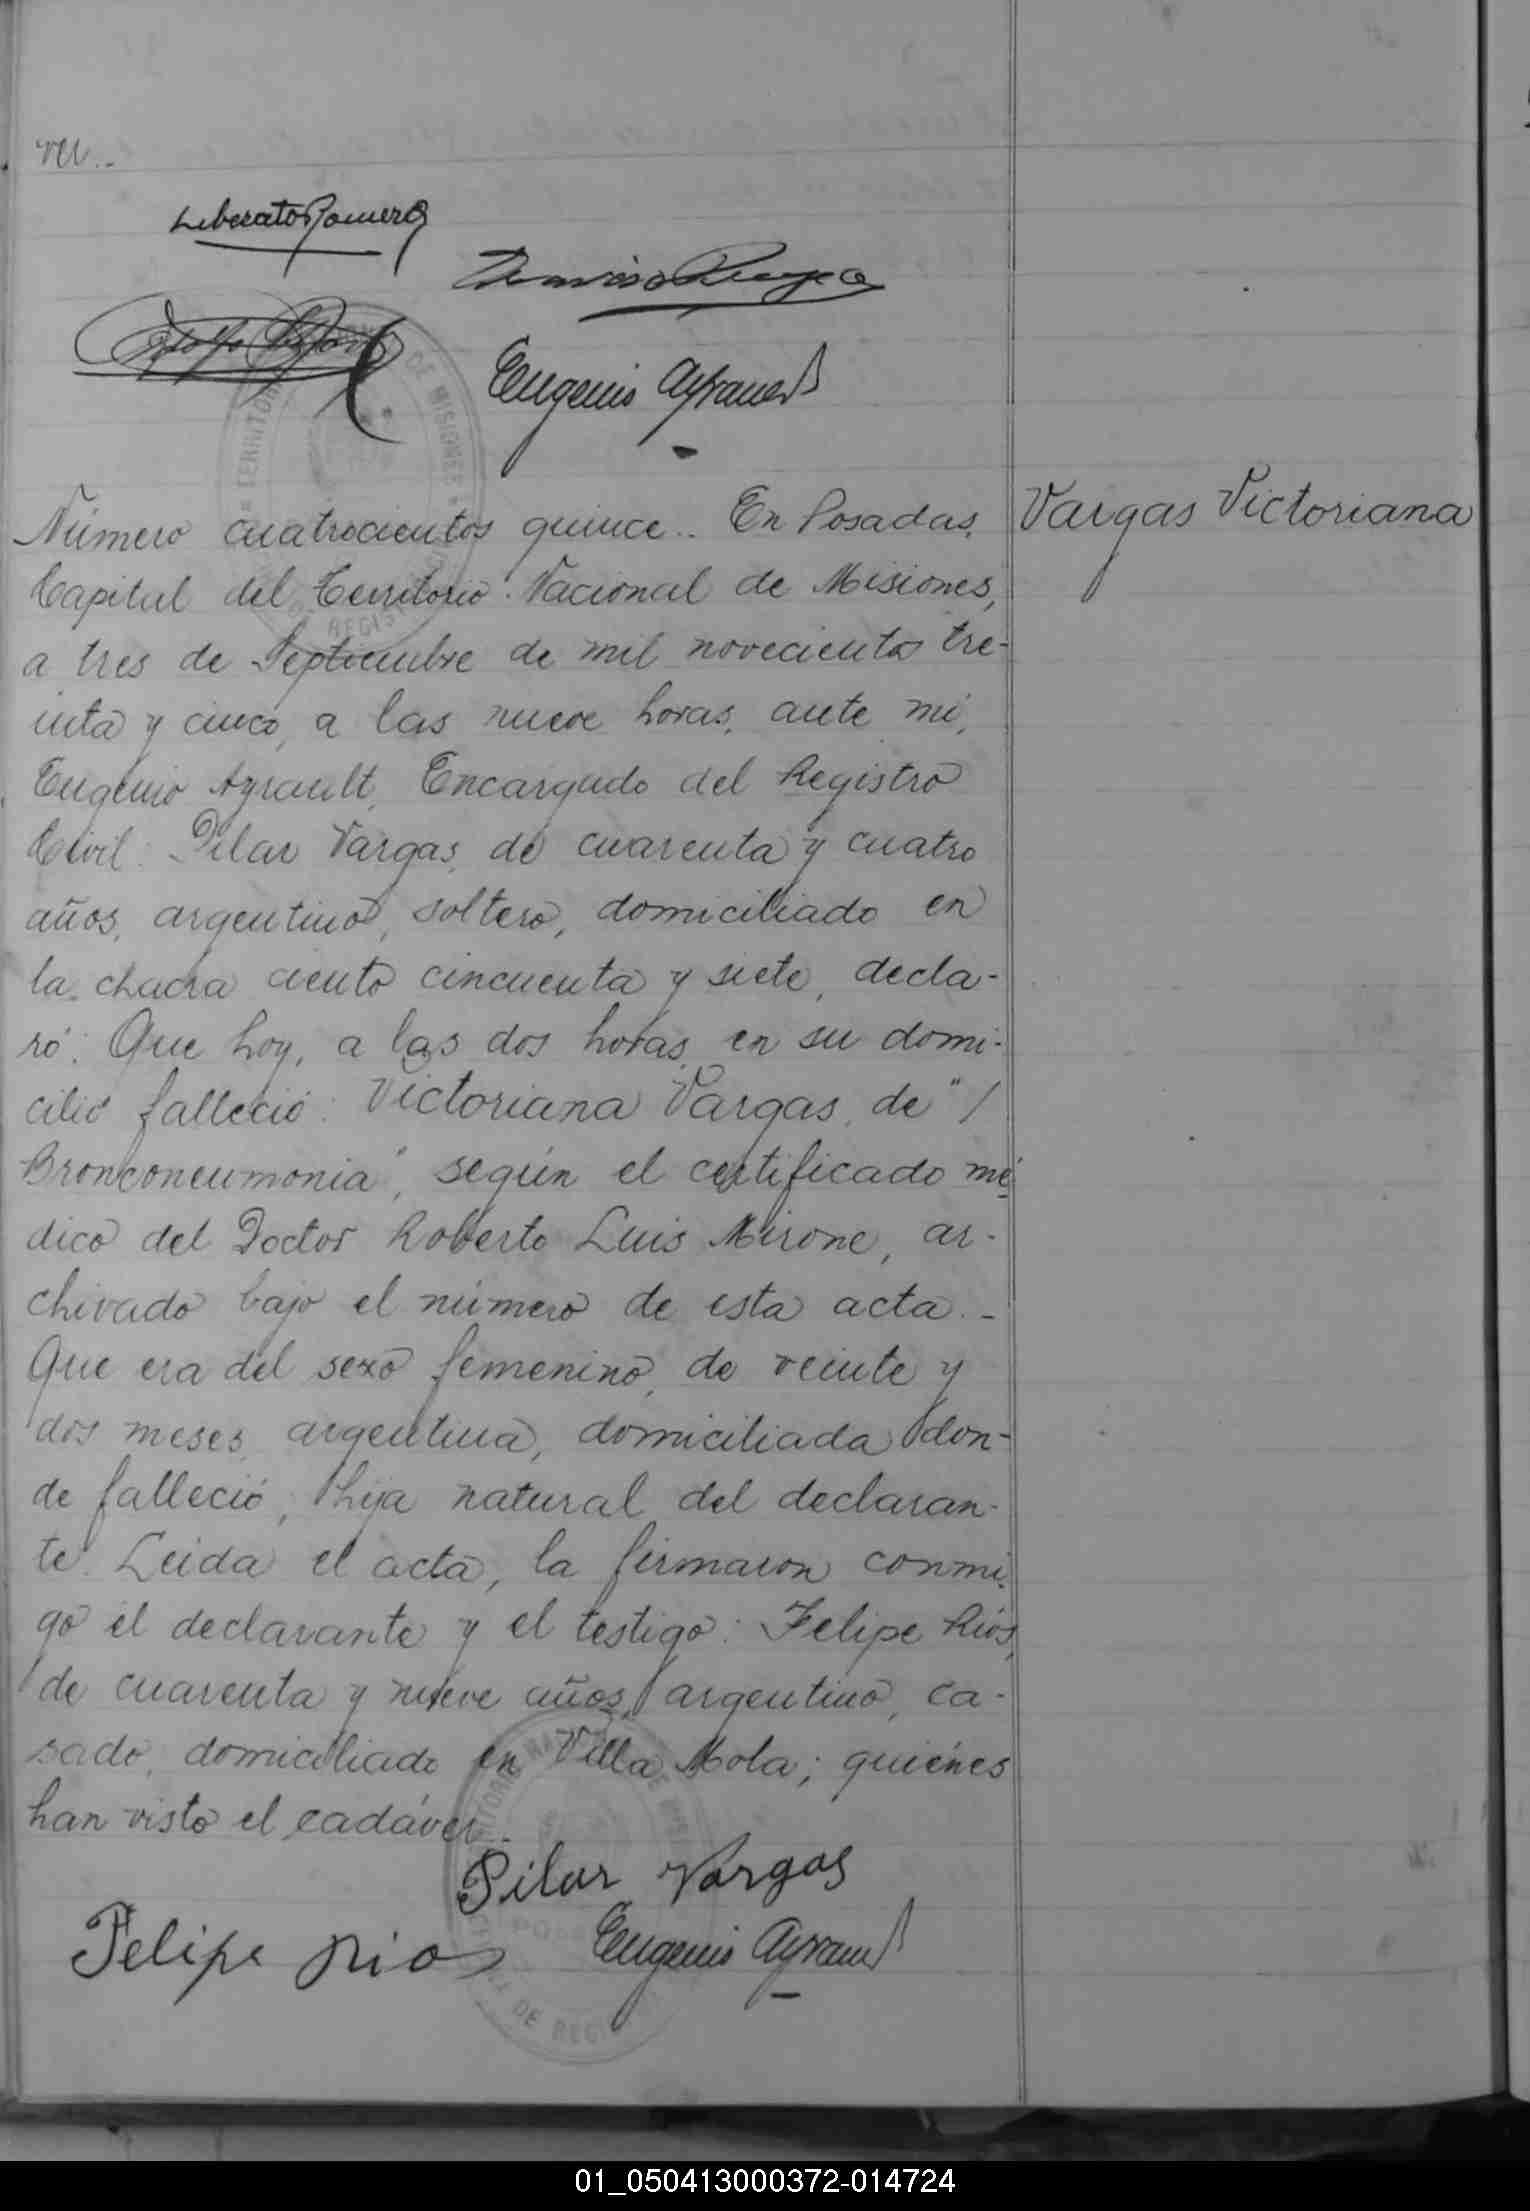 ver..-
Liberato Romero
Eugenio Ayrault
Número cuatrocientos quince.. En Posadas,
Vargas Victoriana
Capital del Territorio Nacional de Misiones,
a tres de Septiembre de mil novecientos tre-
inta y cinco, a las nueve horas, ante mi,
Eugenio Ayrault, Encargado del Registro
Civil: Pilar Vargas, de cuarenta y cuatro
años, argentino, soltero, domiciliado en
la chacra ciento cincuenta y siete, decla-
ró: Que hoy, a las dos horas, en su domi-
cilio falleció: Victoriana Vargas, de "/
Bronconeumonia", según el certificado mé
dico del Doctor Roberto Luis Mirone, ar-
chivado bajo el número de esta acta.-
Que era del sexo femenino, de veinte y
dos meses, argentina, domiciliada don-
de falleció, hija natural del declaran-
te. Leida el acta, la firmaron conmi-
go el declarante y el testigo: Felipe Rios,
de cuarenta y nueve años, argentino, ca-
sado, domiciliado en Villa Mola; quiénes
han visto el cadáver.
Pilar Vargas
Felipe Rios
Eugenio Ayrault
01_050413000372-014724